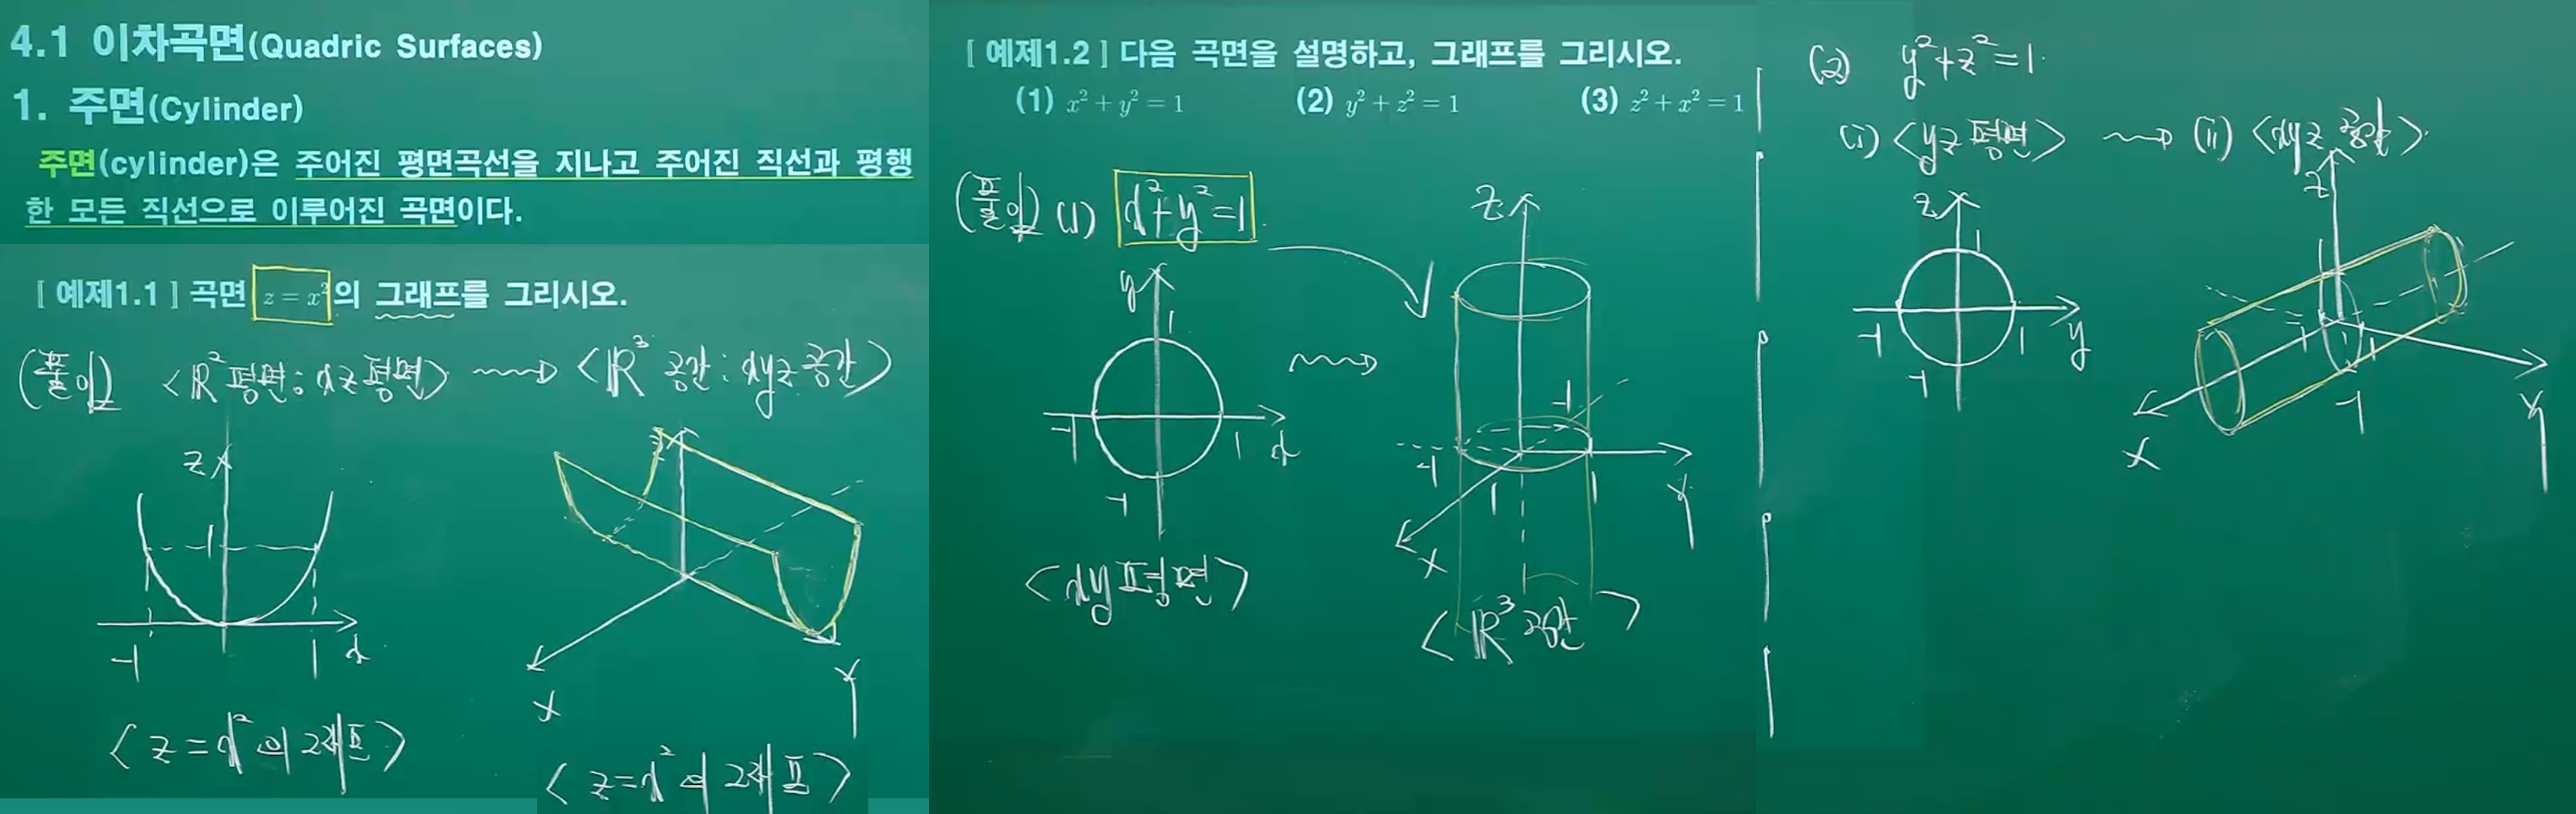 4.1 이차곡면(Quadric Surfaces)
1. 주면(Cylinder)
주면(cylinder)은 주어진 평면곡선을 지나고 주어진 직선과 평행
한 모든 직선으로 이루어진 곡면이다.
[ 예제1.1 ] 곡면 z = x² 의 그래프를 그리시오.
(풀이) <ℝ² 평면: xz평면> ⇝ <ℝ³ 공간: xyz공간>
z
1
-1 1 x
<z=x²의 그래프>
z
x
y
<z=x²의 그래프>
[ 예제1.2 ] 다음 곡면을 설명하고, 그래프를 그리시오.
(1) x² + y² = 1 (2) y² + z² = 1 (3) z² + x² = 1
(풀이) (1) x²+y²=1.
y
1
-1 1 x
-1
<xy평면>
z
-1
-1
1 1 y
x
<ℝ³ 공간>
(2) y²+z²=1.
(i) <yz평면> ⇝ (ii) <xyz 공간>.
z
1
-1 1 y
-1
z
1
-1 1
-1
x
y